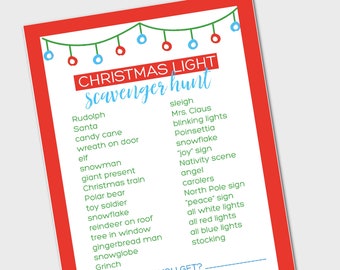 CHRISTMAS LIGHT
scavenger hunt
Rudolph
Santa
candy cane
wreath on door
elf
snowman
giant present
Christmas train
Polar bear
toy soldier
snowflake
reindeer on roof
tree in window
gingerbread man
snowglobe
Grinch
sleigh
Mrs. Claus
blinking lights
Poinsettia
snowflake
"joy" sign
Nativity scene
angel
carolers
North Pole sign
"peace" sign
all white lights
all red lights
all blue lights
stocking
GET?